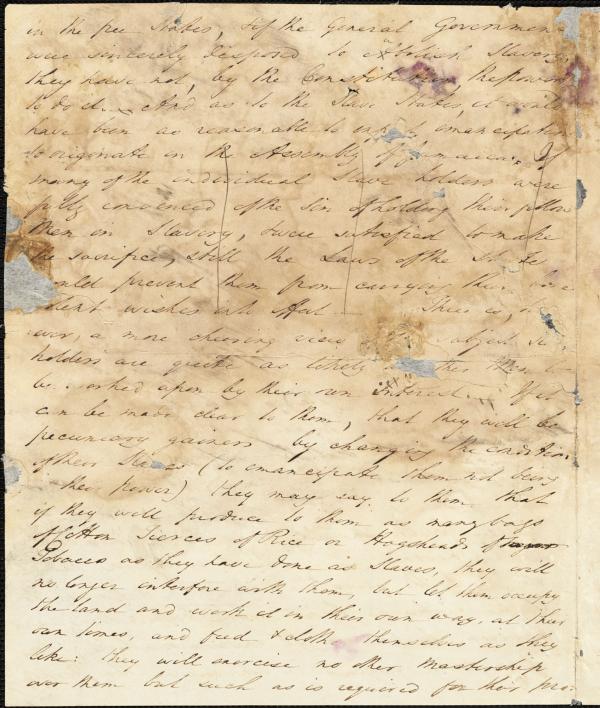 in the free States, & if the General Government
were sincerely disposed to abolish Slavery,
they have not, by the Constitution the power
to do it. And as to the Slave States, it would
have been as reasonable to emancipation
to originate in the Assembly of Jamaica. If
many of the individual Slave holders were
fully convinced of the sin of holding their fellow
Men in Slavery, & were satisfied to make
the sacrifice, still the Laws of the State
would prevent them from carrying their
wishes into effect. There is,
ever, a more cheering view subject
holders are quite as likely as other Men to
be worked upon by their own interest. If it
can be made clear to them, that they will be
pecuniary gainers by changing the condition
of their Slaves (to emancipate them not being
their power) they may say to them that
if they will produce to them as many bags
of Cotton Tierces of Rice or Hogsheads of
Tobacco as they have done as Slaves, they will
no longer interfere with them, but let them occupy
the land and work it in their own way, at their
own times, and feed & cloth themselves as they
like: they will exercise no other mastership
over them but such as is required for their pro-